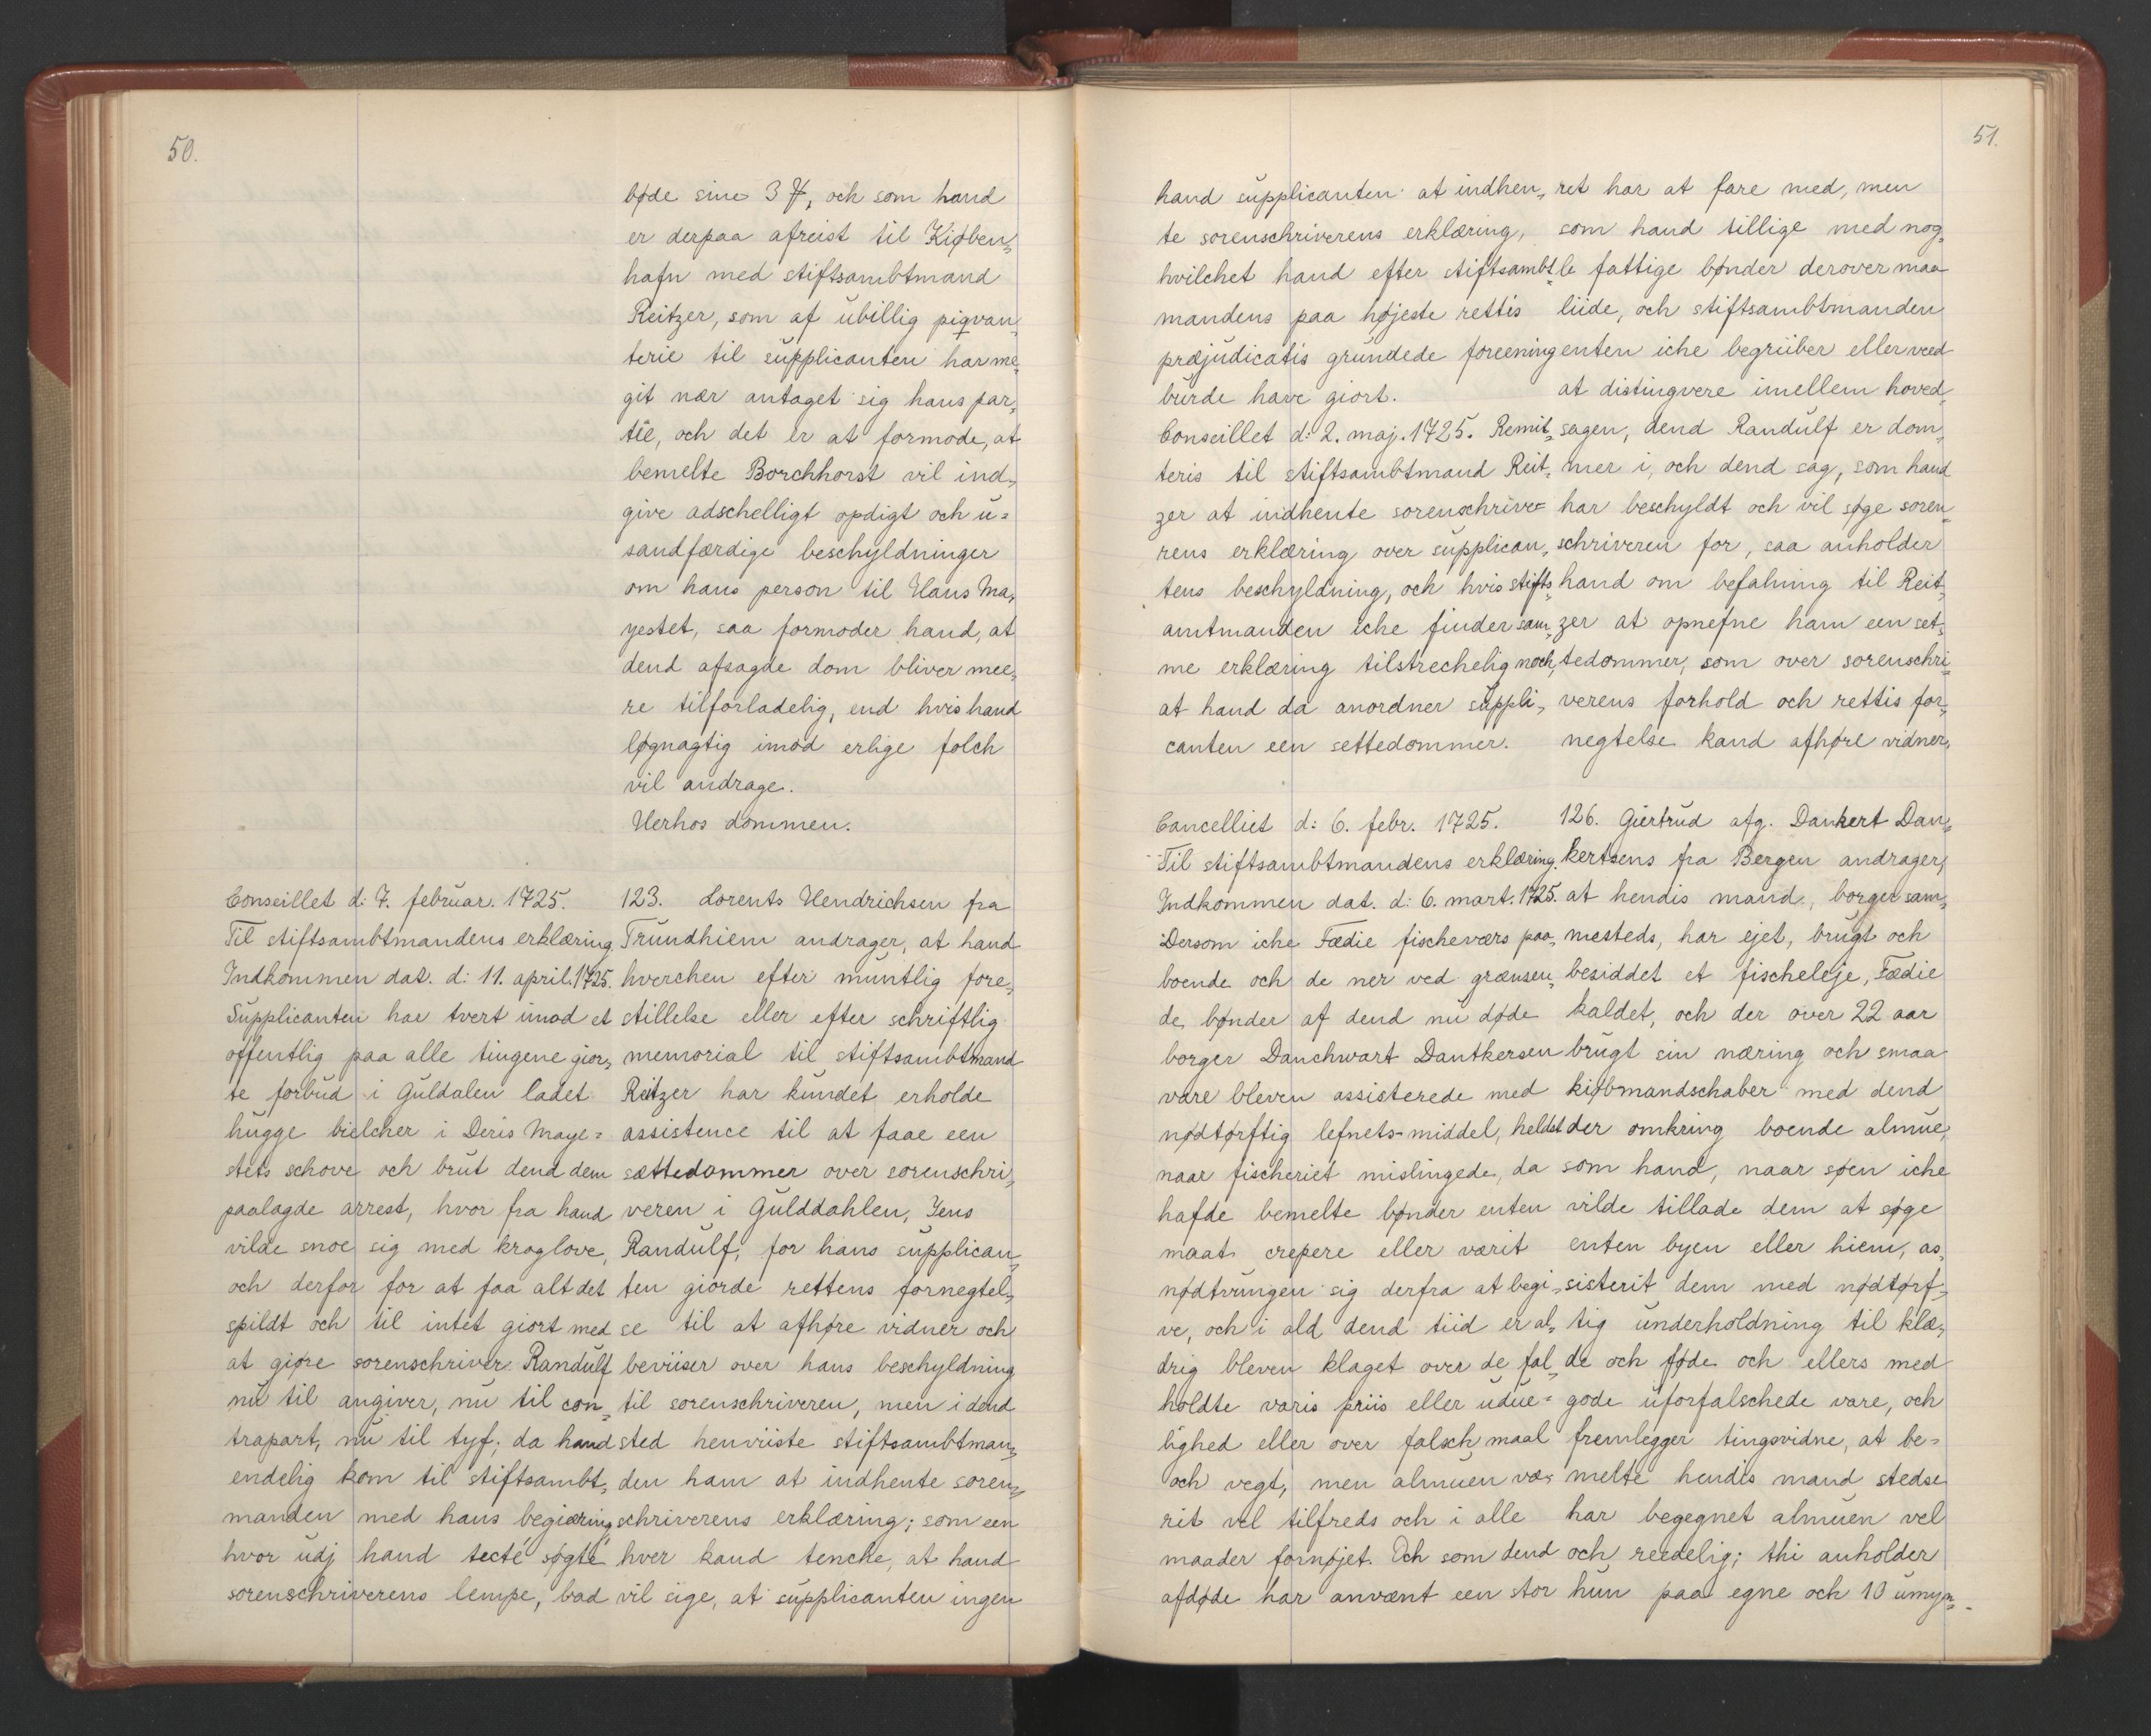 50.
bøde sine 3 ℔, och som hand
er derpaa afreist til Kiøben„
hafn med stiftsambtmand
Reitzer, som af ubillig piqvan„
terie til supplicanten har me„
git nær antaget sig hans par„
tie, och det er at formode, at
bemelte Borchhorst vil ind„
give adschelligt opdigt och u=
sandfærdige beschyldninger
om hans person til Hans Ma„
yestet, saa formoder hand, at
dend afsagde dom bliver mee„
re tilforladelig, end hvis hand
løgnagtig imod erlige folch
vil andrage.
Herhos dommen.
Conseillet d: 7. februar. 1725.
Til stiftsambtmandens erklæring.
Indkommen dat. d: 11. april. 1725.
Supplicanten har tvert imod et
offentlig paa alle tingene gior„
te forbud i Guldalen ladet
hugge bielcher i Deris Maye=
stets schove och brut dend dem
paalagde arrest, hvor fra hand
vilde snoe sig med kroglove,
och derfor for at faa alt det
spildt och til intet giort med
at giøre sorenschriver Randulf
nu til angiver, nu til con„
trapart, nu til tyf; da hand
endelig kom til stiftsambt„
manden med hans begiæring,
hvor udj hand tecté søgte
sorenschriverens lempe, bad
123. Lorents Hendrichsen fra
Trundhiem andrager, at hand
hverchen efter muntlig fore„
stillelse eller efter schriftlig
memorial til stiftsambtmand
Reitzer har kundet erholde
assistence til at faae een
sættedommer over sorenschri„
veren i Gulddahlen, Jens
Randulf, for hans supplican„
ten giorde rettens fornegtel„
se til at afhøre vidner och
beviiser over hans beschyldning
til sorenschriveren, men i dend
sted henviiste stiftsambtman„
den ham at indhente soren„
schriverens erklæring; som een
hver kand tencke, at hand
vil sige, at supplicanten ingen
51.
hand supplicanten at indhen„
te sorenschriverens erklæring,
hvilchet hand efter stiftsambt„
mandens paa højeste rettis
præjudicatis grundede foreening
burde have giort.
Conseillet d: 2. maj. 1725. Remit„
teris til stiftsambtmand Reit„
zer at indhente sorenschrive=
rens erklæring over supplican„
tens beschyldning, och hvis stifts„
amtmanden iche finder sam„
me erklæring tilstrechelig noch,
at hand da anordner suppli„
canten een settedommer.
ret har at fare med, men
som hand tillige med nog„
le fattige bønder derover maa
liide, och stiftsambtmanden
enten iche begriiber eller veed
at distingvere imellem hoved„
sagen, dend Randulf er dom„
mer i, och dend sag, som hand
har beschyldt och vil søge soren„
schriveren for, saa anholder
hand om befalning til Reit„
zer at opnefne ham een set„
tedommer, som over sorenschri„
verens forhold och rettis for„
negtelse kand afhøre vidner.
Cancelliet d: 6. febr. 1725.
Til stiftsambtmandens erklæring.
Indkommen dat. d: 6. mart. 1725.
Dersom iche Fædie fischeværs paa„
boende och de ner ved grænsen„
de bønder af dend nu døde
borger Danchwart Dantkersen
vare bleven assisterede med
nødtørftig lefnets-middel, heldst
naar fischeriet mislingede, da
hafde bemelte bønder enten
maat crepere eller værit
nødtvungen sig derfra at begi„
ve, och i ald dend tiid er al„
drig bleven klaget over de fal„
holdte varis priis eller udue=
lighed eller over falsch maal
och vegt, men almuen væ„
rit vel tilfreds och i alle
maader fornøjet. Och som dend
afdøde har anvænt een stor
126. Giertrud afg. Dankert Dan„
kertsens fra Bergen andrager,
at hendis mand, borger sam„
mesteds, har ejet, brugt och
besiddet et fischeleje, Fædie
kaldet, och der over 22 aar
brugt sin næring och smaa
kiøbmandschaber med dend
der omkring boende almue,
som hand, naar søen iche
vilde tillade dem at søge
enten byen eller hiem, as„
sisterit dem med nødtørf„
tig underholdning til klæ„
de och føde och ellers med
gode uforfalschede vare, och
fremlegger tingsvidne, at be=
melte hendis mand stedse
har begegnet almuen vel
och reedelig; thi anholder
hun paa egne och 10 umyn„